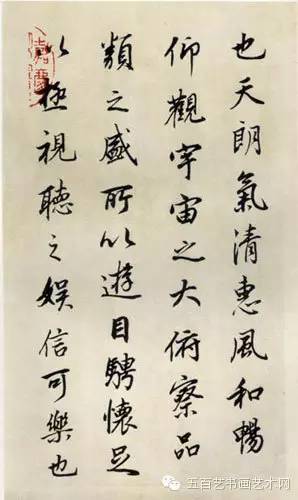 也天朗氣清惠風和暢
仰觀宇宙之大俯察品
類之盛所以遊目騁懷足
以極視聽之娱信可樂也
五百艺书画艺术网